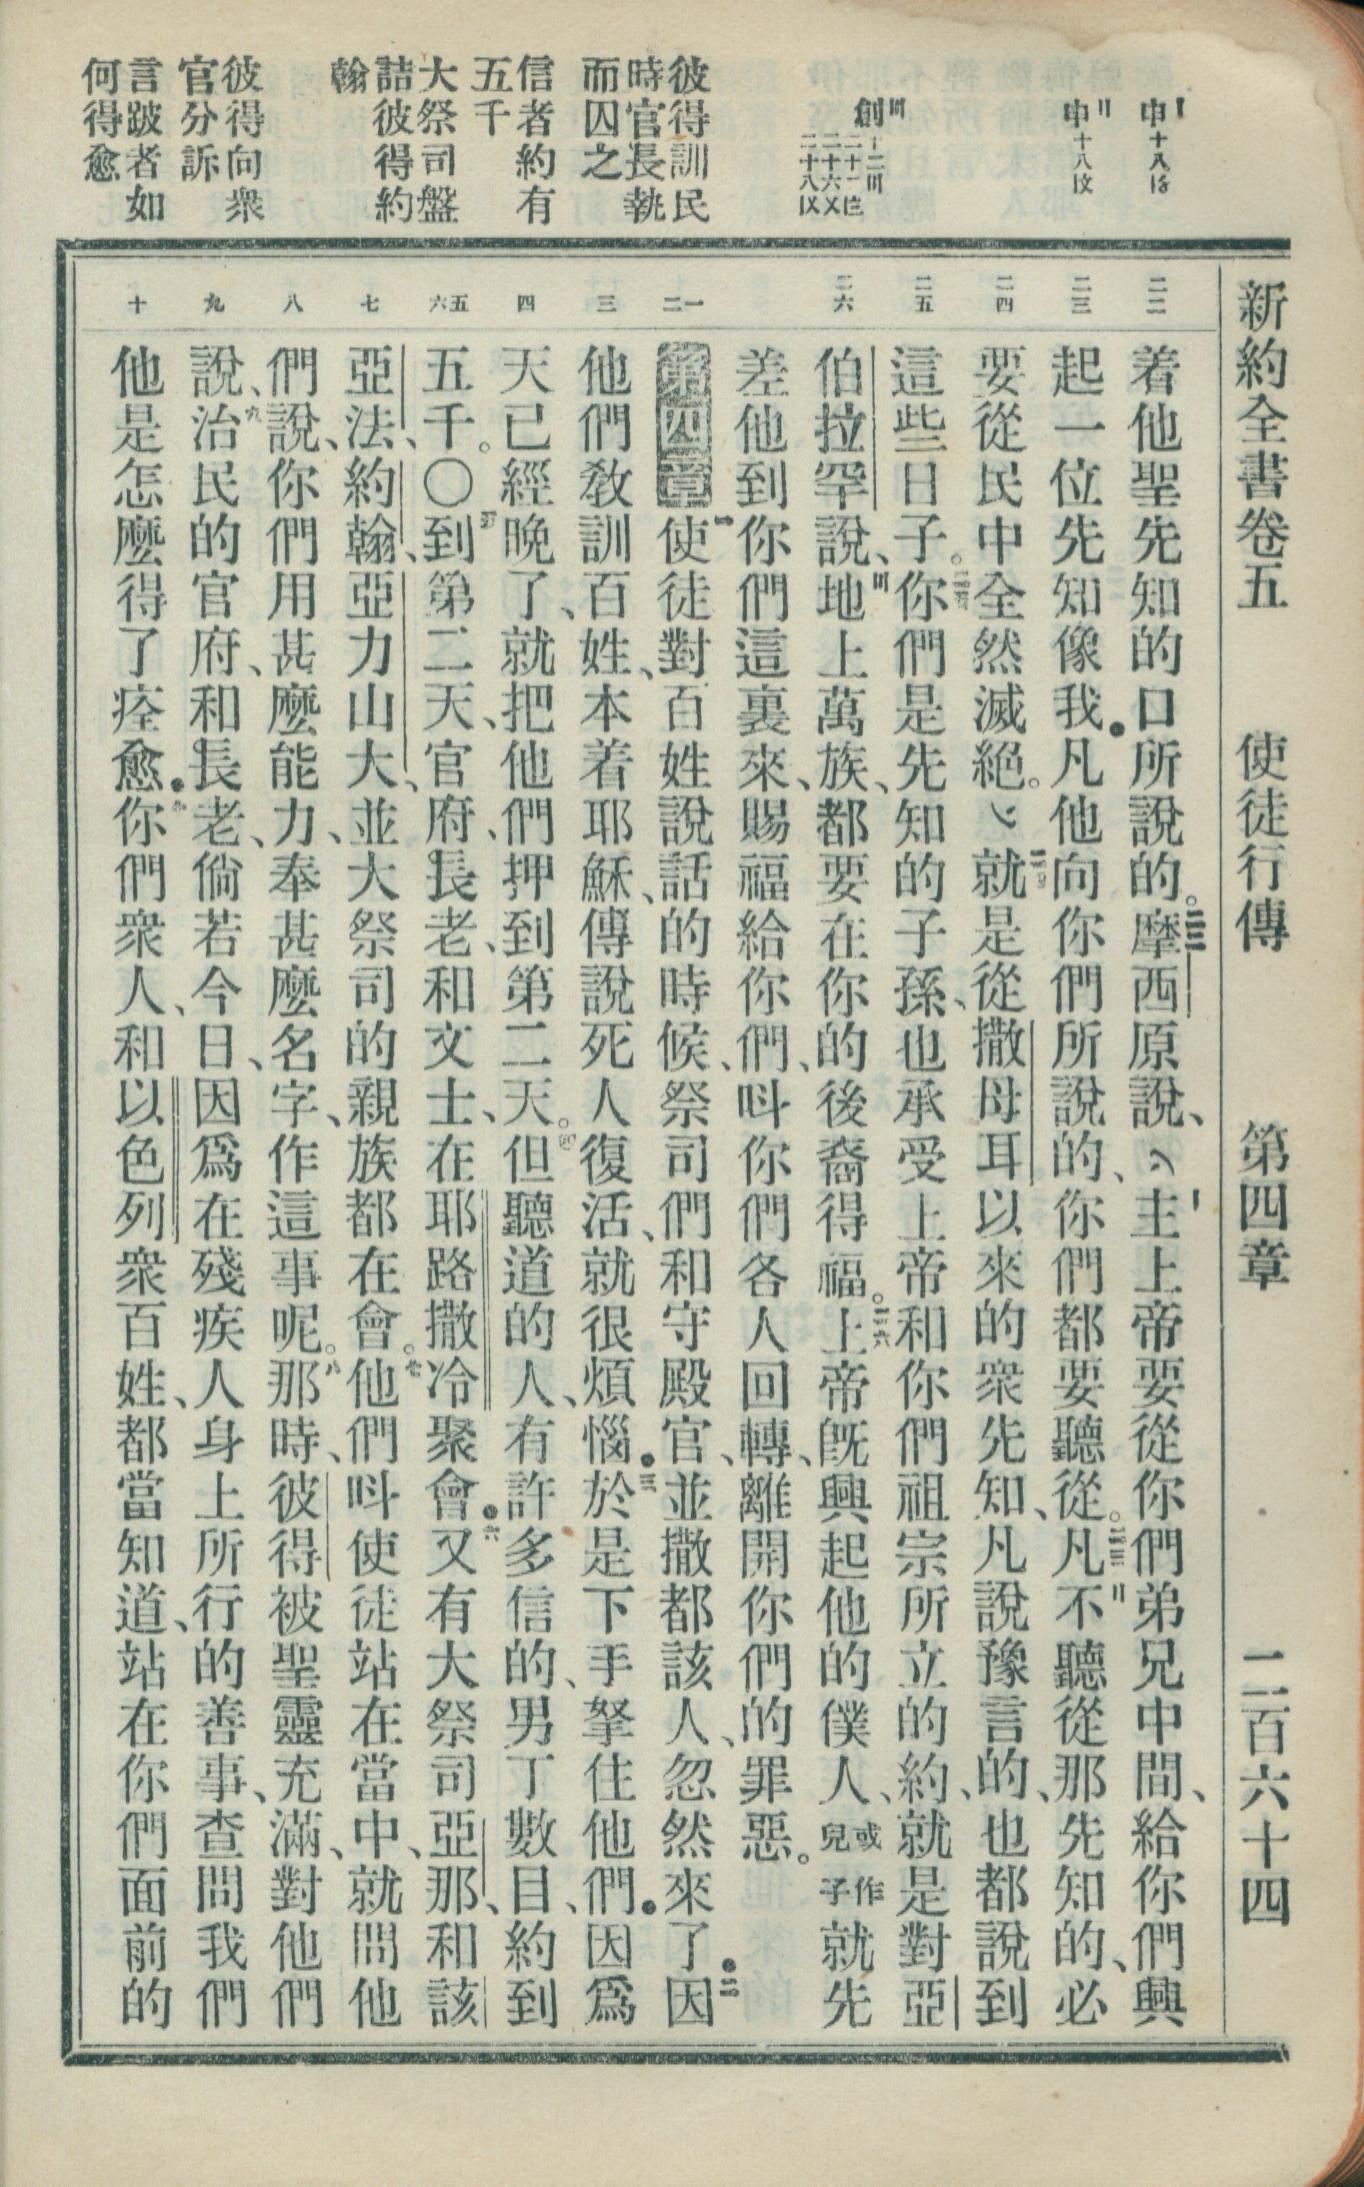 新約全書卷五　使徒行傳　第四章　二百六十四
申十八
申十八
創十二
二十六
二十八
彼得訓民
時官長執
而囚之
信者約有
五千
大祭司盤
詰彼得約
翰
彼得向衆
官分訴
言跛者如
何得愈
二二
二三
二四
二五
二六
一
二
三
四
五
六
七
八
九
十
着他聖先知的口所說的。摩西原說、主上帝要從你們弟兄中間、給你們興
起一位先知像我．凡他向你們所說的、你們都要聽從。凡不聽從那先知的、必
要從民中全然滅絕。就是從撒母耳以來的衆先知、凡說豫言的、也都說到
這些日子。你們是先知的子孫、也承受上帝和你們祖宗所立的約、就是對亞
伯拉罕說、地上萬族、都要在你的後裔得福。上帝旣興起他的僕人、或作兒子就先
差他到你們這裏來、賜福給你們、呌你們各人回轉、離開你們的罪惡。
第四章 使徒對百姓說話的時候、祭司們和守殿官、並撒都該人、忽然來了．因
他們敎訓百姓、本着耶穌、傳說死人復活、就很煩惱．於是下手拏住他們．因爲
天已經晚了、就把他們押到第二天。但聽道的人、有許多信的、男丁數目、約到
五千。〇到第二天、官府、長老、和文士、在耶路撒冷聚會．又有大祭司亞那、和該
亞法、約翰、亞力山大、並大祭司的親族都在會。他們呌使徒站在當中、就問他
們說、你們用甚麼能力、奉甚麼名字、作這事呢。那時、彼得被聖靈充滿、對他們
說、治民的官府、和長老、倘若今日、因爲在殘疾人身上所行的善事、查問我們
他是怎麼得了痊愈．你們衆人、和以色列衆百姓、都當知道、站在你們面前的